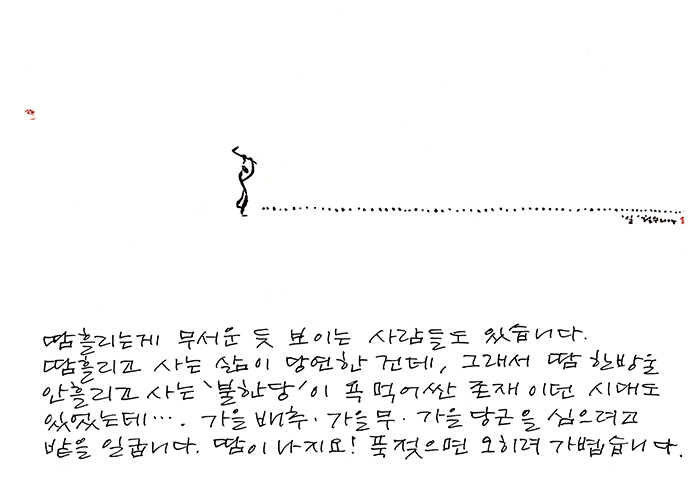 '일' 철수 2004
땀흘리는게 무서운 듯 보이는 사람들도 있습니다.
땀흘리고 사는 삶이 당연한 건데, 그래서 땀 한방울
안흘리고 사는 '불한당'이 욕 먹어싼 존재이던 시대도
있었는데···. 가을배추·가을무·가을당근을 심으려고
밭을 일굽니다. 땀이 나지요! 푹젖으면 오히려 가볍습니다.